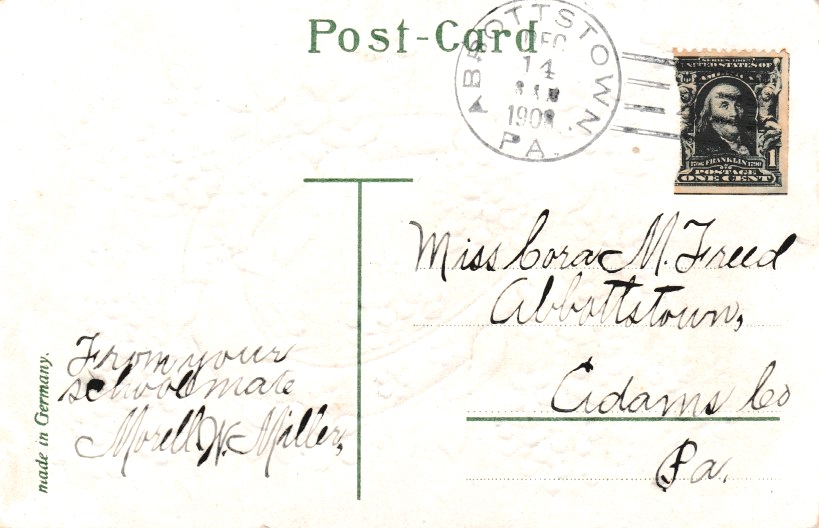 Post-Card
ABBOTTSTOWN
DEC
14
1908
PA.
SERIES 1902
UNITED STATES OF
AMERICA
1706 FRANKLIN 1790
POSTAGE 1
ONE CENT
Miss Cora M. Freed
Abbottstown,
Adams Co
Pa.
From your
schoolmate
Morell W. Miller,
made in Germany.